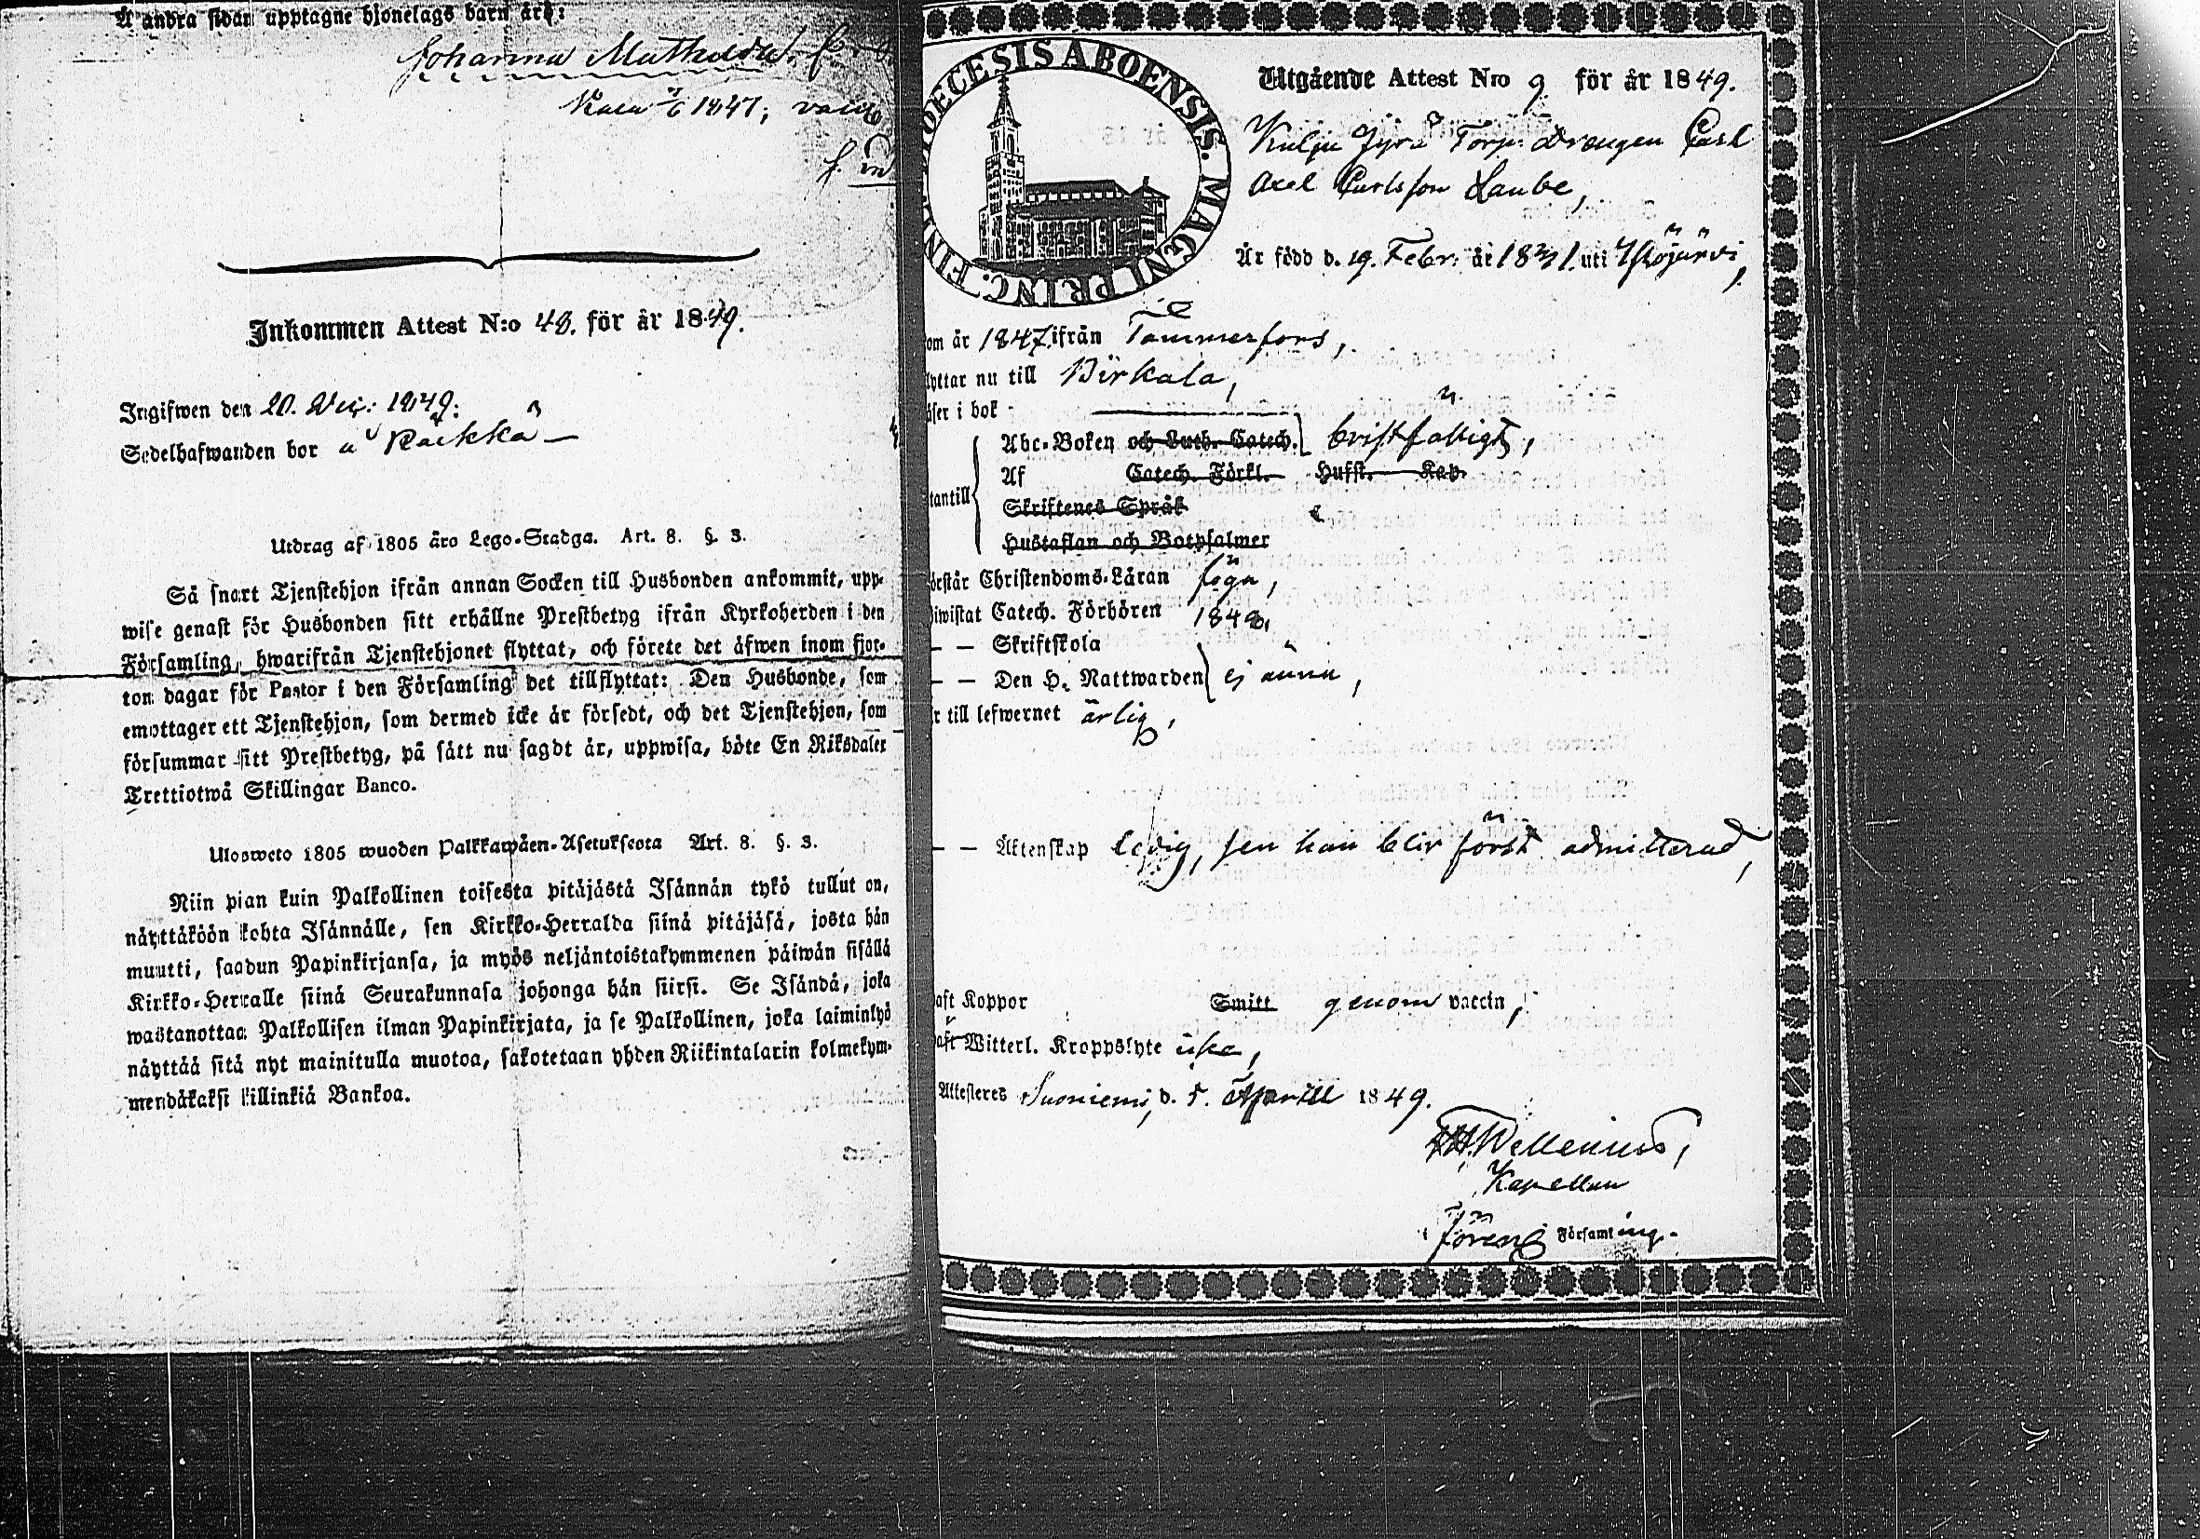 Å andra sidan upptagne hjonelags barn äro:
Johanna Mathilda, f.
1847;
Inkommen Attest N:o 48. för år 1849.
Ingifwen den 20. 1849.
Sedelhafwanden bor å Räikkä
Utdrag af 1805 åro Lego-Stadga. Art. 8. §. 3.
Så snart Tjenstehjon ifrån annan Socken till Husbonden ankommit, upp-
wise genast för Husbonden sitt erhållne Prestbetyg ifrån Kyrkoherden i den
Församling, hwarifrån Tjenstehjonet flyttat, och förete det äfwen inom fjor-
ton dagar för Pastor i den Församling det tillflyttat: Den Husbonde, som
emottager ett Tjenstehjon, som dermed icke är försedt, och det Tjenstehjon, som
försummar sitt Prestbetyg, på sätt nu sagdt är, uppwisa, böte En Riksdaler
Trettiotwå Skillingar Banco.
Ulosweto 1805 wuoden Palkkawäen-Asetuksesta Art. 8. §. 3.
Niin pian kuin Palkollinen toisesta pitäjästä Isännän tykö tullut on,
näyttäköön kohta Isännälle, sen Kirkko-Herralda siinä pitäjäsä, josta hän
muutti, saadun Papinkirjansa, ja myös neljäntoistakymmenen päiwän sisällä
Kirkko-Herralle siinä Seurakunnasa johonga hän siirsi. Se Isändä, joka
wastanottaa Palkollisen ilman Papinkirjata, ja se Palkollinen, joka laiminlyö
näyttää sitä nyt mainitulla muotoa, sakotetaan yhden Riikintalarin kolmekym-
mendäkaksi killinkiä Bankoa.
DIOECESIS ABOENSIS. MAGNI PRINC. FINL
Utgående Attest Nro 9 för år 1849.
Kulju Jyrä Torp. Drengen Carl
Axel Carlsson Laube,
Är född d. 19. Febr. år 1831. uti Ylöjärvi,
om år 1847 ifrån Tammerfors,
lyttar nu till Birkala,
äser i bok
Abc-Boken och Luth. Catech. bristfälligt,
Af Catech. Förkl. Hufst. Kap.
tantill
Skriftenes Språk
Hustaflan och Botpsalmer
örstår Christendoms-Läran föga,
iwistat Catech. Förhören 1849,
— — Skriftskola
— — Den H. Nattwarden ej ännu,
r till lefwernet ärlig,
— — Äktenskap ledig, sen han blir först admitterad,
aft Koppor Smitt genom vaccin,
aft Witterl. Kroppslyte icke,
Attesteres Suoniemi, d. 5. Aprill 1849.
Wellenius,
Kapellan
i Församling.